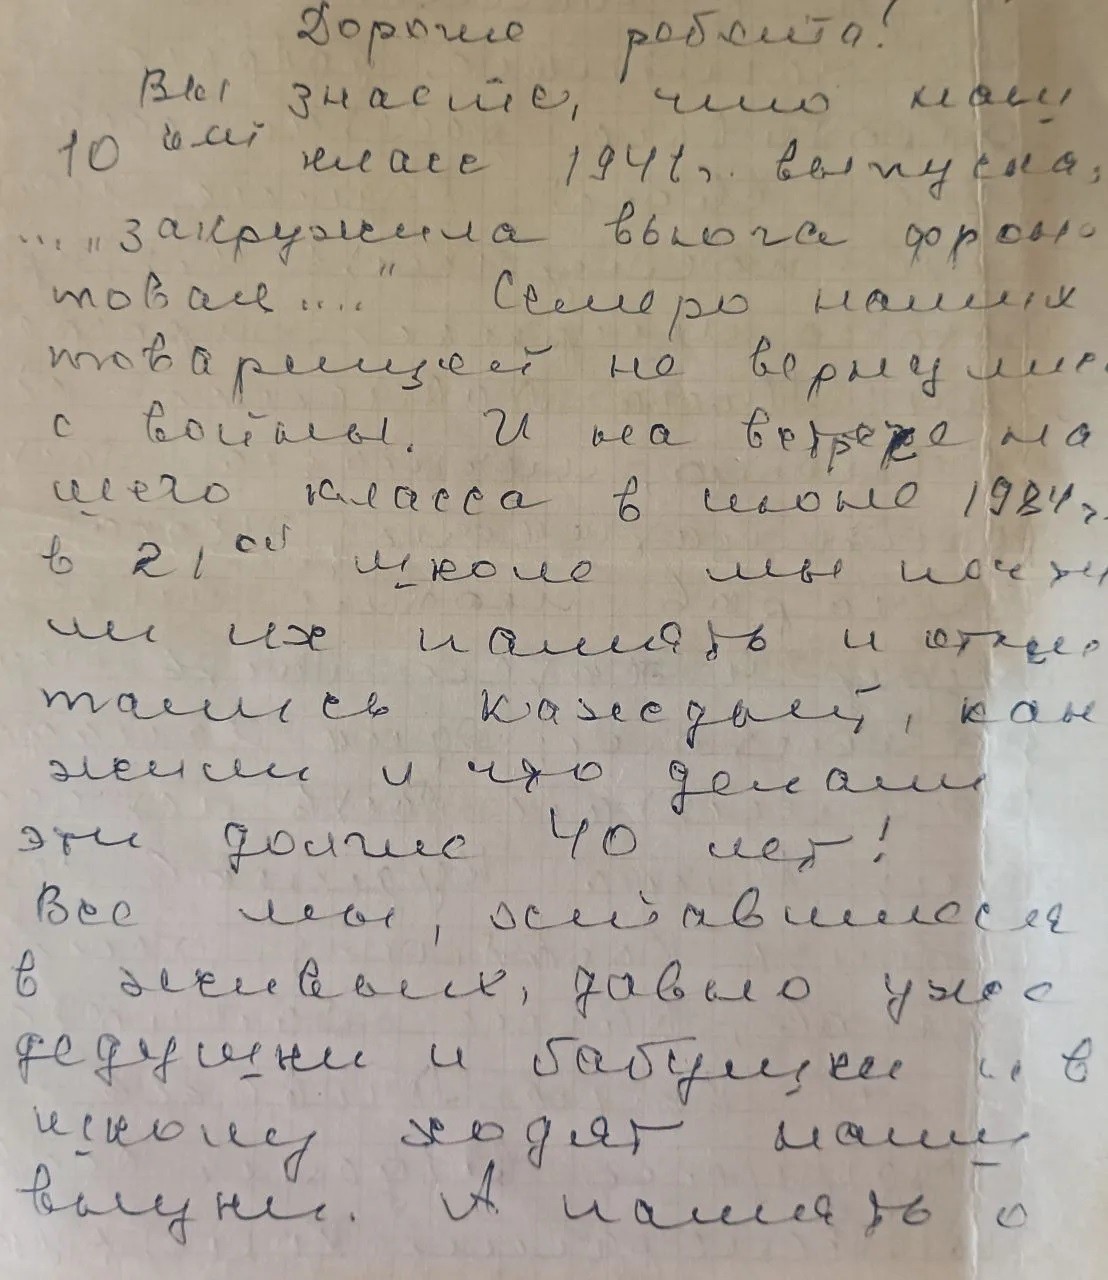 Дорогие ребята!
Вы знаете, что наш
10ый класс 1941 г. выпуска,
... „закружила вьюга фрон-
товая....“ Семеро наших
товарищей не вернулись
с войны. И на встрече на
шего класса в июне 1984 г.
в 21ой школе мы почти
ли их память и отчи-
тались каждый, как
жили и что делали
эти долгие 40 лет!
Все мы, оставшиеся
в живых, давно уже
дедушки и бабушки и в
школу ходят наши
внуки. А память о